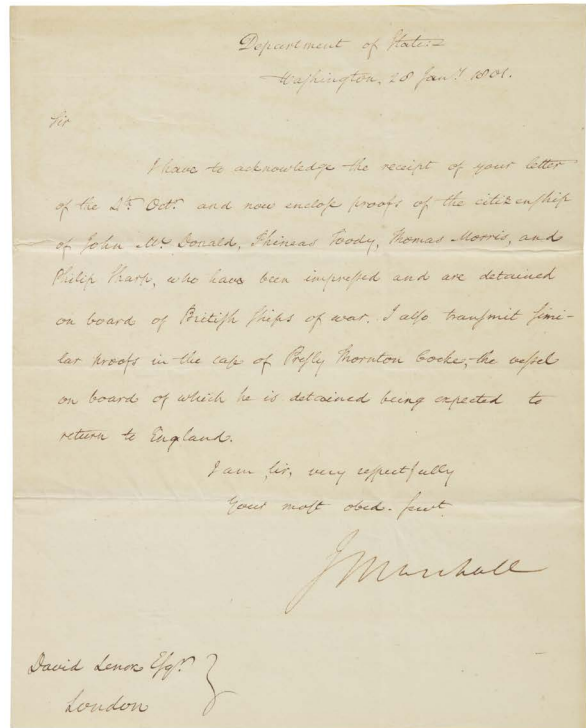 Department of State:
Washington, 28 Jany. 1801.
Sir
I have to acknowledge the receipt of your letter
of the 4th. Octr. and now enclose proofs of the citizenship
of John Mc. Donald, Phineas Tooby, Thomas Morris, and
Philip Sharp, who have been impressed and are detained
on board of British ships of war. I also transmit simi-
lar proofs in the case of Presly Thornton Cocke, the vessel
on board of which he is detained being expected to
return to England.
I am, Sir, very respectfully
Your most obed. servt.
J Marshall
David Lenox Esqr.
London